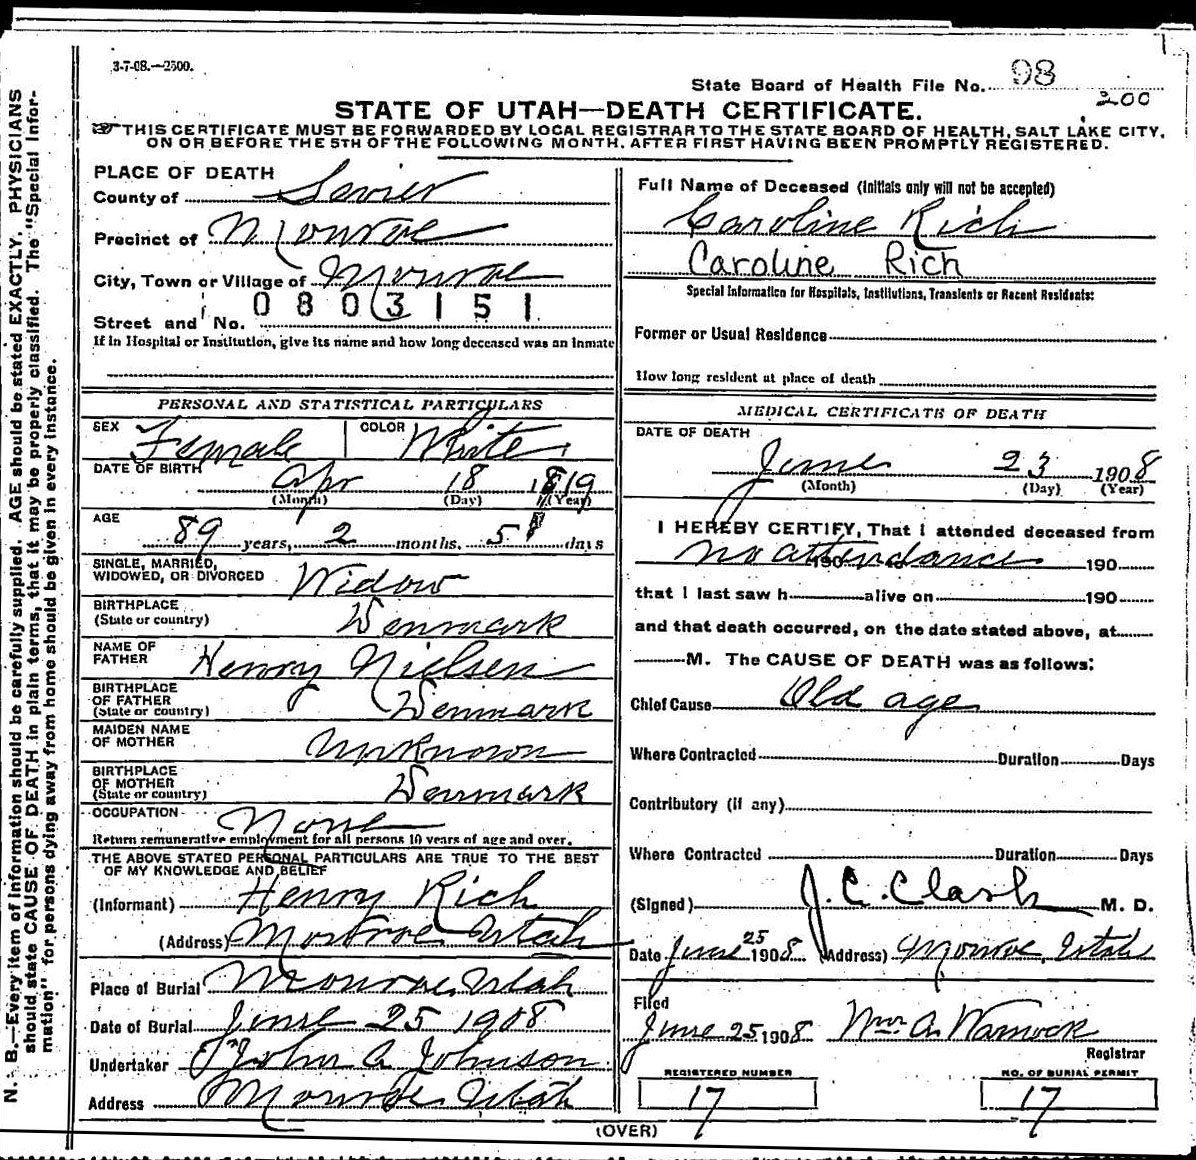 3-7-08.—2500.
State Board of Health File No. 98
200
STATE OF UTAH—DEATH CERTIFICATE.
☞THIS CERTIFICATE MUST BE FORWARDED BY LOCAL REGISTRAR TO THE STATE BOARD OF HEALTH, SALT LAKE CITY,
ON OR BEFORE THE 5TH OF THE FOLLOWING MONTH, AFTER FIRST HAVING BEEN PROMPTLY REGISTERED.
N. B.—Every item of information should be carefully supplied. AGE should be stated EXACTLY. PHYSICIANS
should state CAUSE OF DEATH in plain terms, that it may be properly classified. The "Special Infor-
mation" for persons dying away from home should be given in every instance.
PLACE OF DEATH
County of Sevier
Precinct of Monroe
City, Town or Village of Monroe
0803151
Street and No.
If in Hospital or Institution, give its name and how long deceased was an inmate
PERSONAL AND STATISTICAL PARTICULARS
SEX Female COLOR White
DATE OF BIRTH
Apr 18 1819
(Month) (Day) (Year)
AGE
89 years, 2 months, 5 days
SINGLE, MARRIED,
WIDOWED, OR DIVORCED Widow
BIRTHPLACE
(State or country) Denmark
NAME OF
FATHER Henry Nielsen
BIRTHPLACE
OF FATHER
(State or country) Denmark
MAIDEN NAME
OF MOTHER Unknown
BIRTHPLACE
OF MOTHER
(State or country) Denmark
OCCUPATION None
Return remunerative employment for all persons 10 years of age and over.
THE ABOVE STATED PERSONAL PARTICULARS ARE TRUE TO THE BEST
OF MY KNOWLEDGE AND BELIEF
(Informant) Henry Rich
(Address) Monroe Utah
Place of Burial Monroe, Utah
Date of Burial June 25 1908
Undertaker John A Johnson
Address Monroe Utah
Full Name of Deceased (Initials only will not be accepted)
Caroline Rich
Caroline Rich
Special Information for Hospitals, Institutions, Transients or Recent Residents:
Former or Usual Residence
How long resident at place of death
MEDICAL CERTIFICATE OF DEATH
DATE OF DEATH
June 23 1908
(Month) (Day) (Year)
I HEREBY CERTIFY, That I attended deceased from
no attendance 190 to 190
that I last saw h alive on 190
and that death occurred, on the date stated above, at
M. The CAUSE OF DEATH was as follows:
Chief Cause Old age
Where Contracted Duration Days
Contributory (if any)
Where Contracted Duration Days
(Signed) J. C. Clark M. D.
Date June 25 1908 (Address) Monroe, Utah
Filed
June 25 1908 Wm A. Warnock
Registrar
REGISTERED NUMBER
17
NO. OF BURIAL PERMIT
17
(OVER)